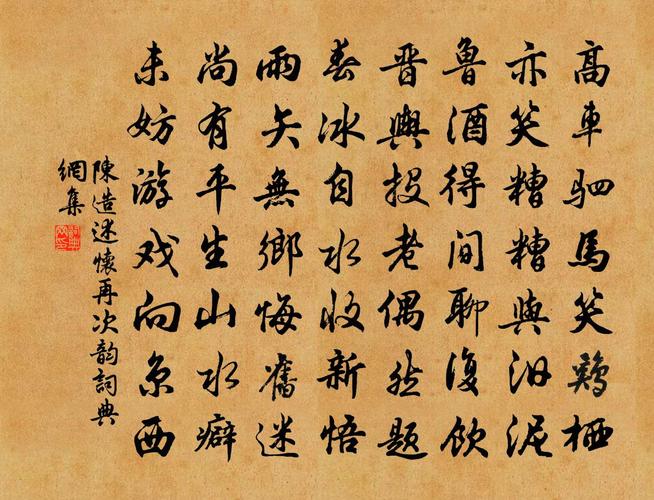 高車駟馬笑鶏栖
亦笑糟糟與汩泥
魯酒得间聊復飲
晋與投老偶然題
春冰自水收新悟
雨矢無鄉悔舊迷
尚有平生山水癖
未妨游戏向京西
陳造述懷再次韵詞典
網集